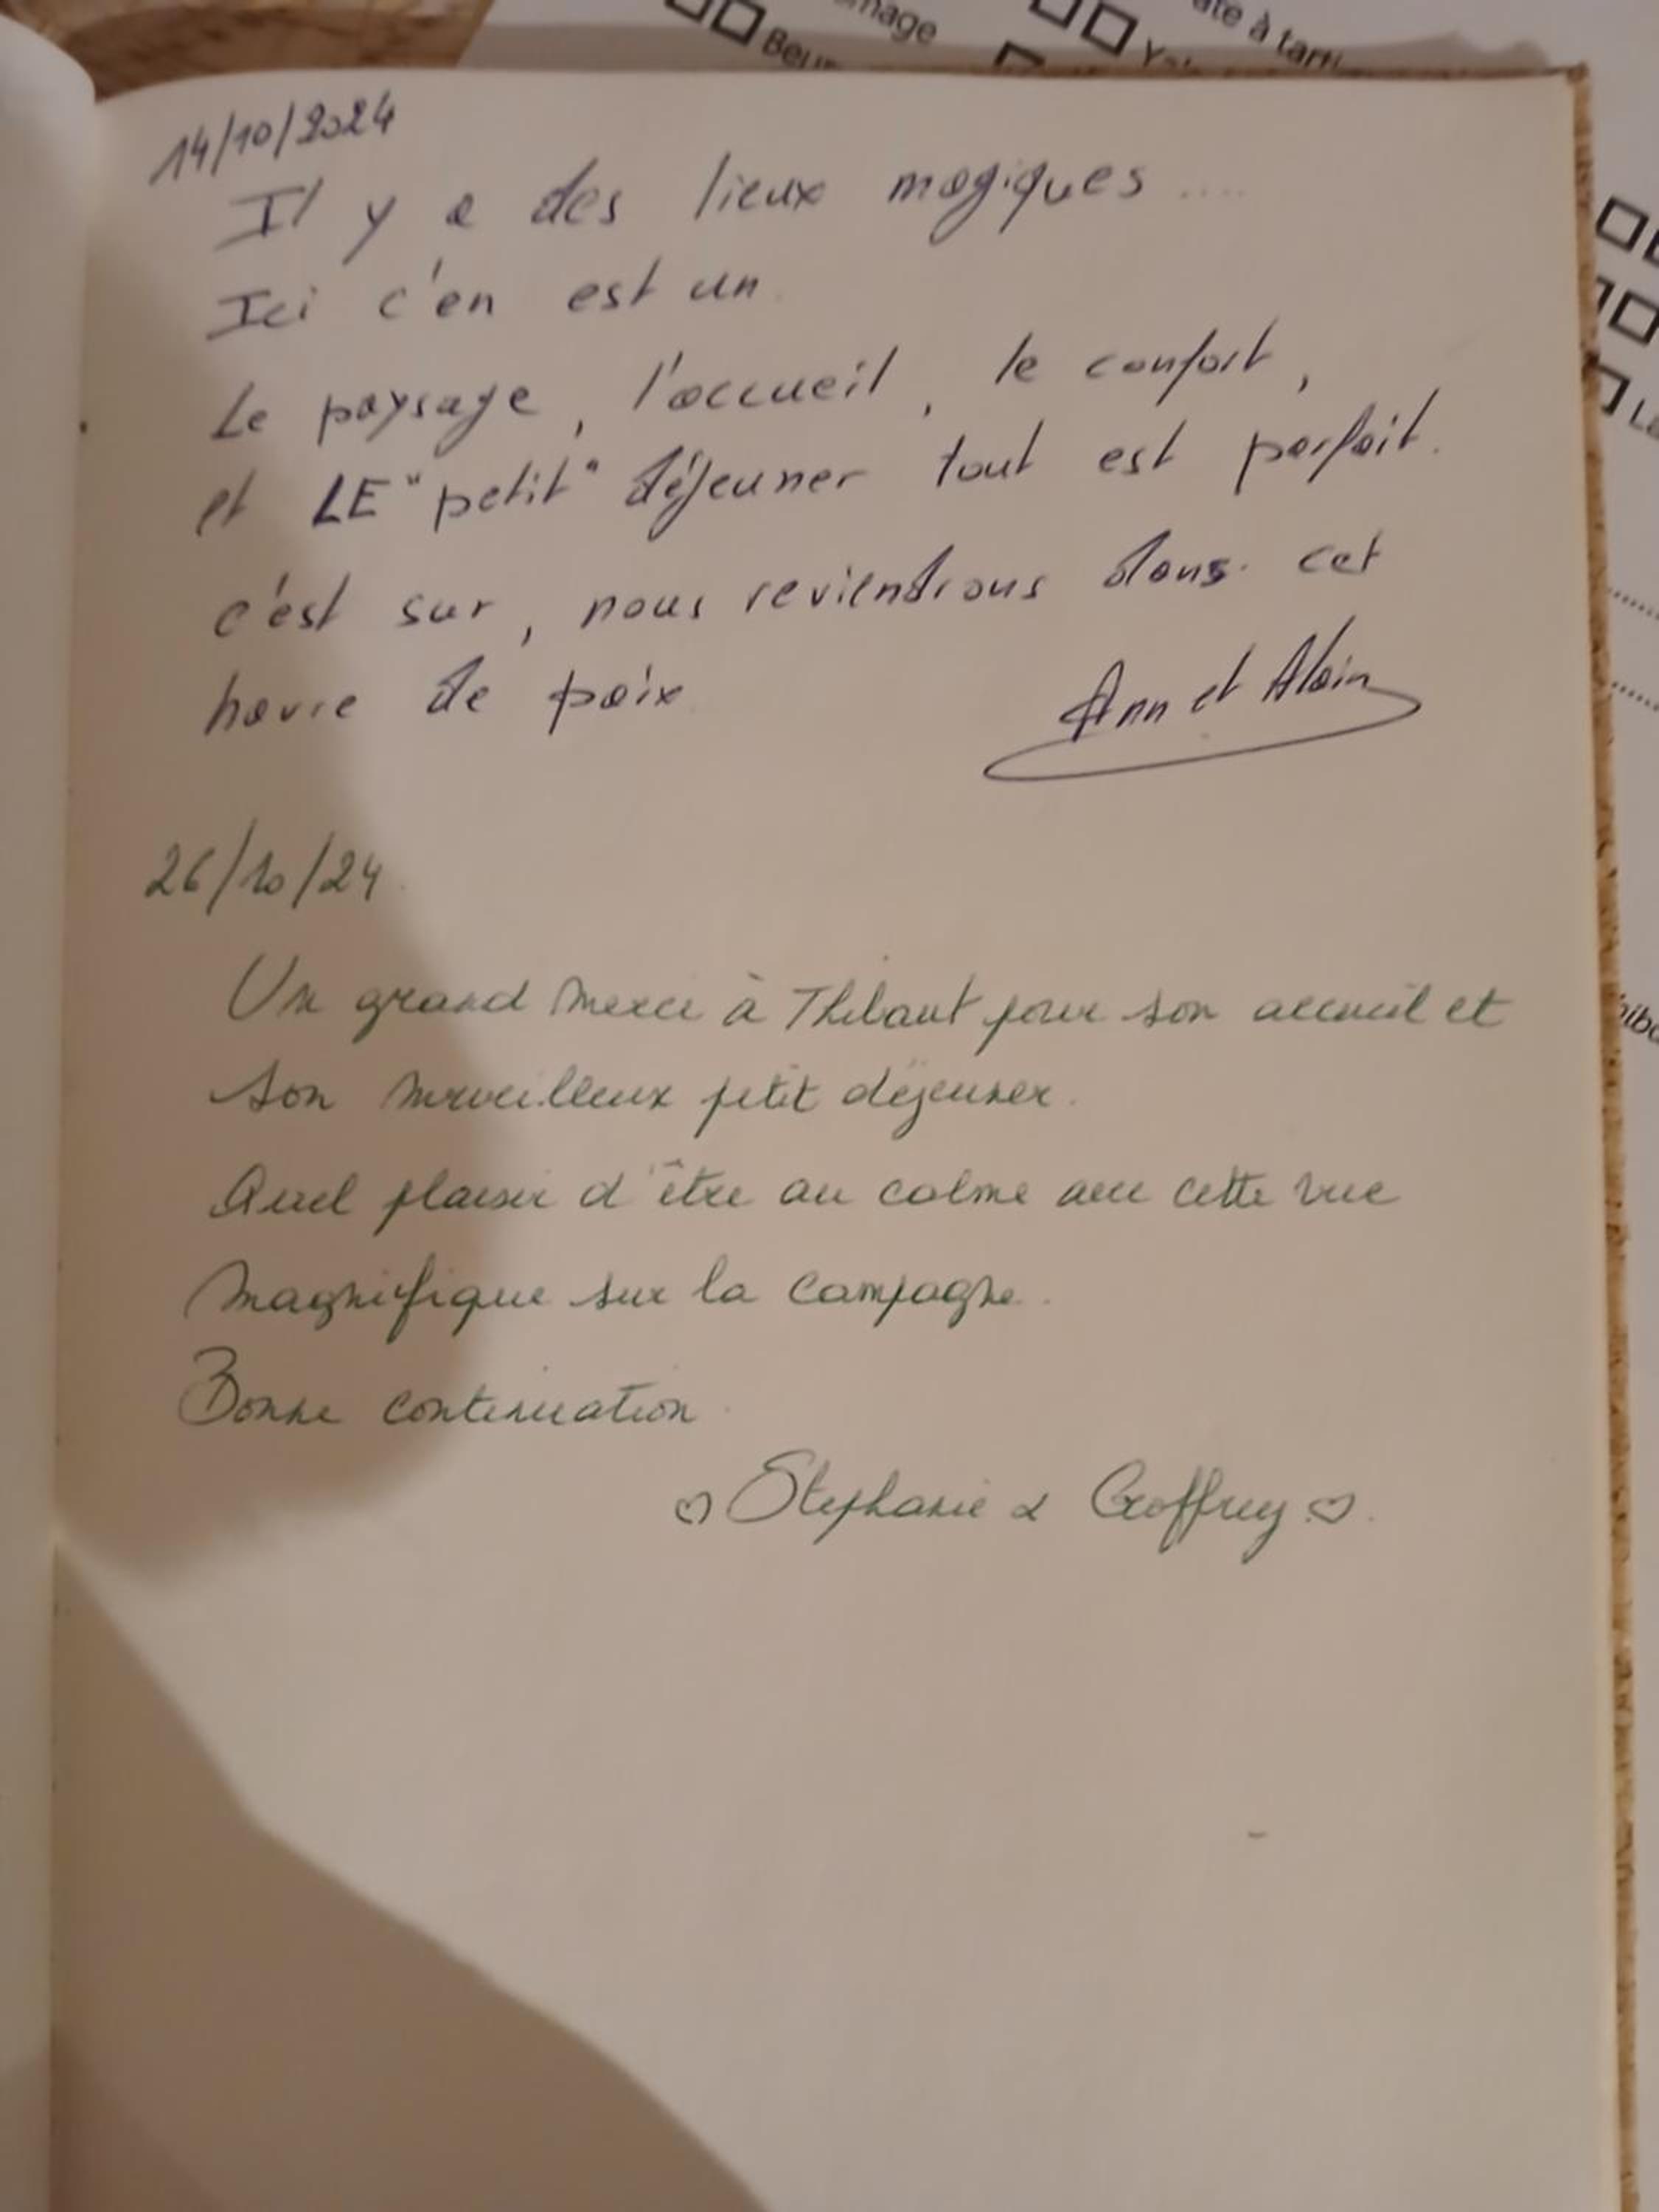 14/10/2024
Il y a des lieux magiques ....
Ici c'en est un.
Le paysage, l'accueil, le confort,
et LE "petit" déjeuner tout est parfait.
c'est sur, nous reviendrons dans cet
havre de paix
Ann et Alain
26/10/24
Un grand merci à Thibaut pour son accueil et
son merveilleux petit déjeuner.
Quel plaisir d'être au calme avec cette vue
magnifique sur la campagne.
Bonne continuation
♡ Stephanie & Geoffrey ♡.